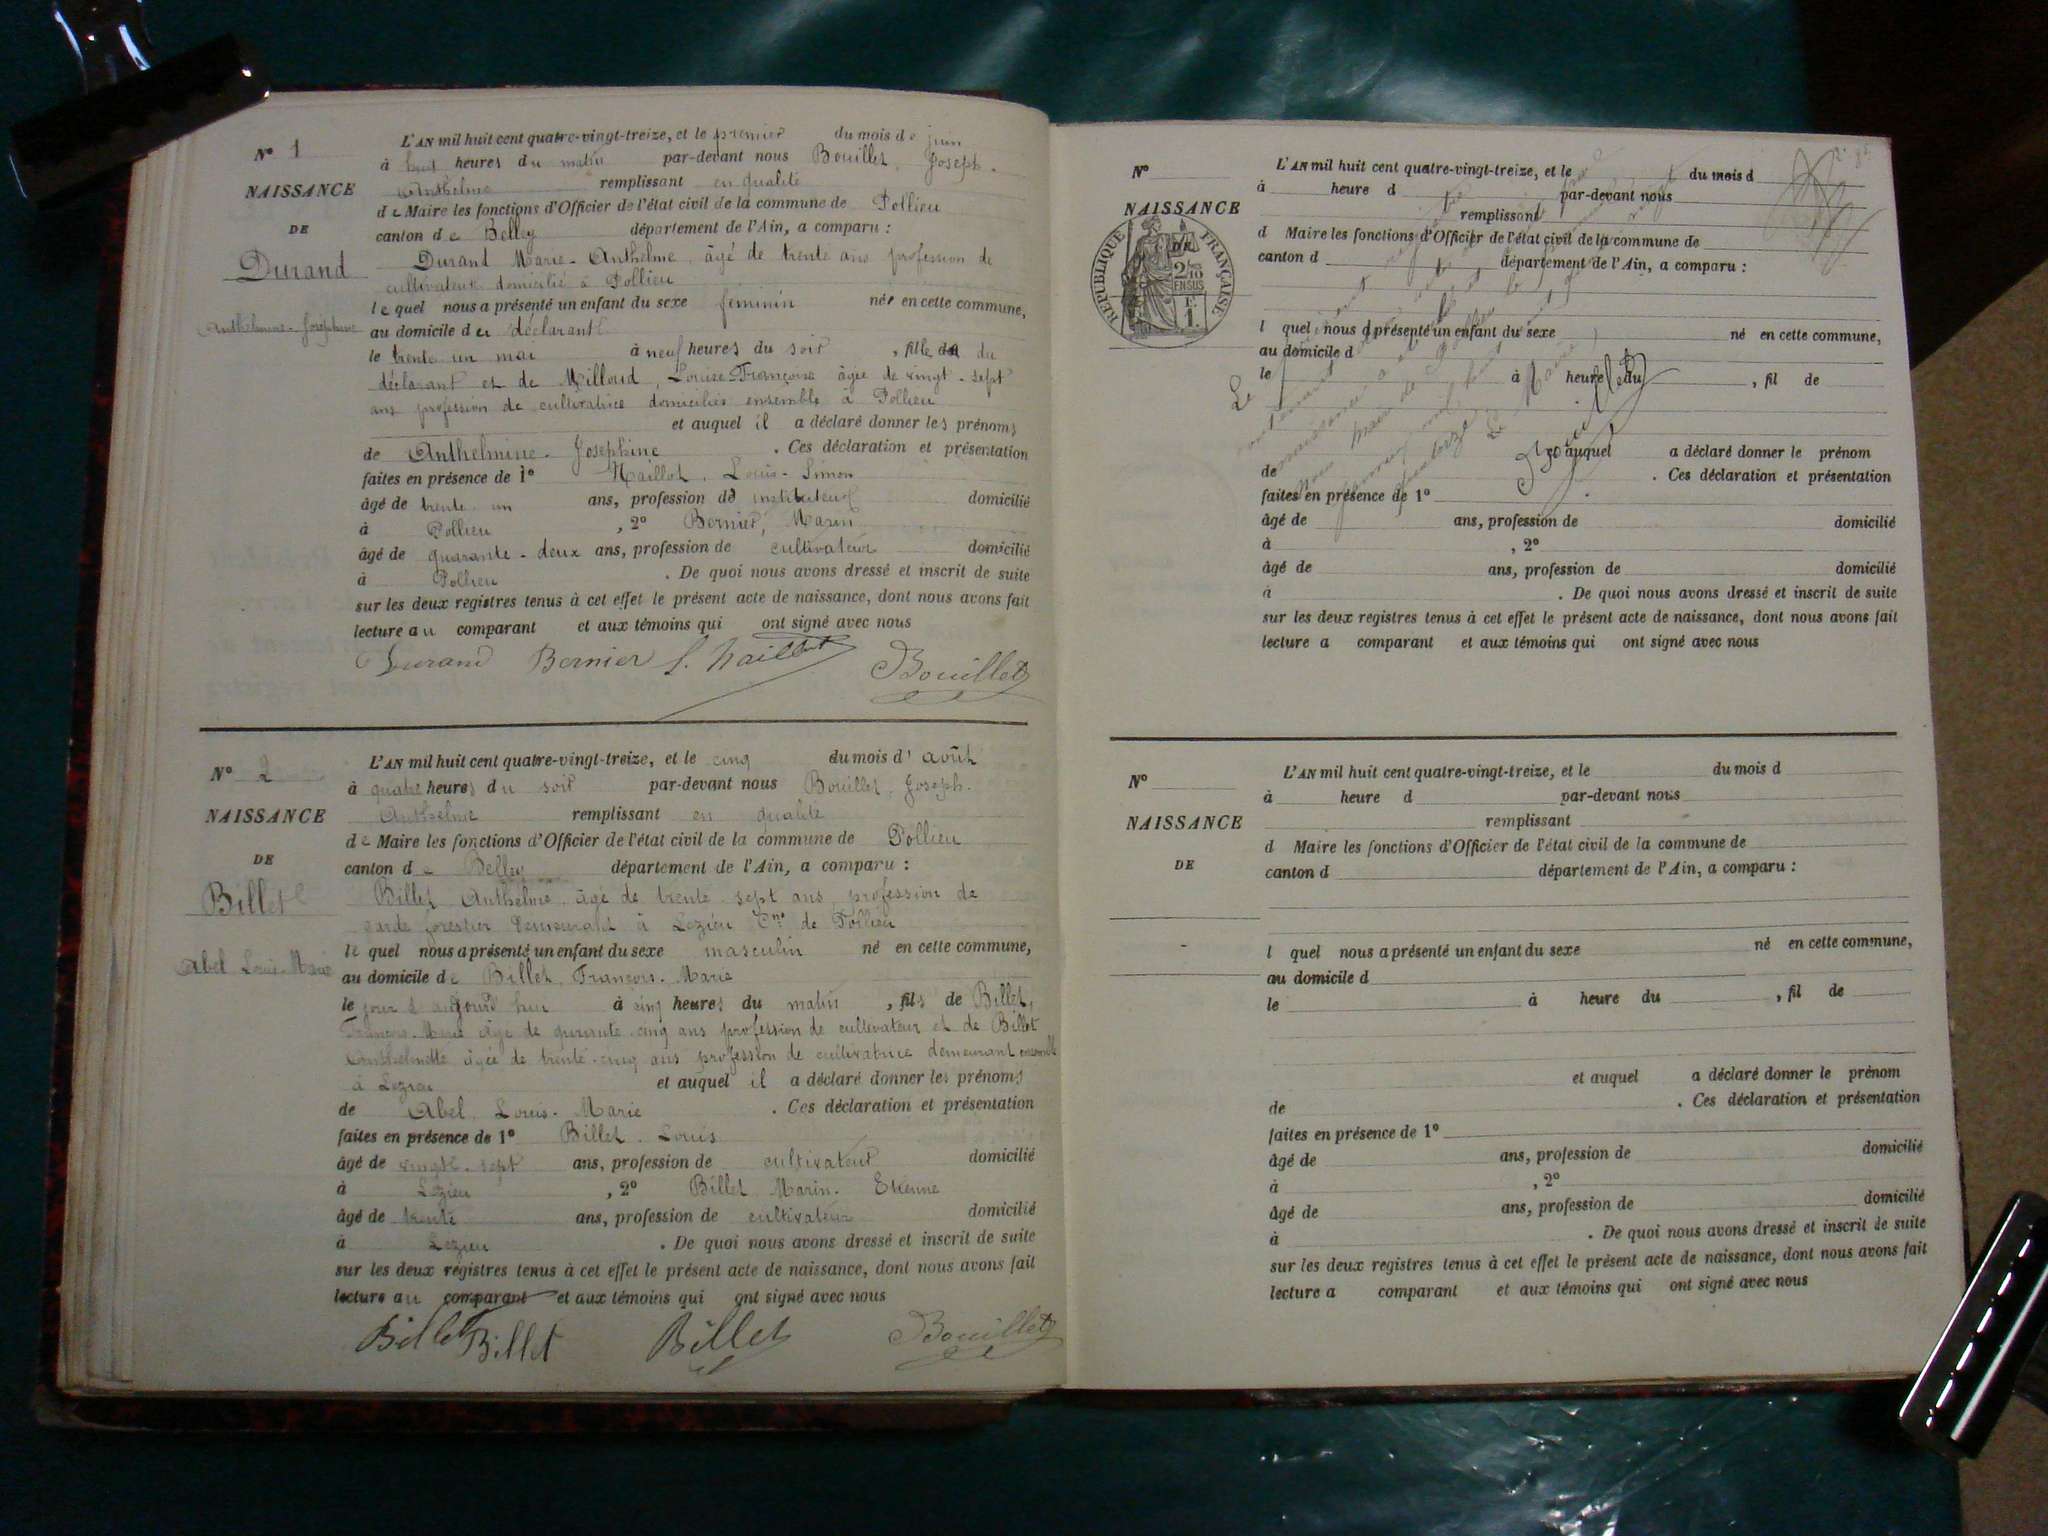 N° 1
NAISSANCE
DE
Durand
Anthelmine-Joséphine
L'AN mil huit cent quatre-vingt-treize, et le premier du mois de juin
à huit heures du matin par-devant nous Bouillet, Joseph-
Anthelme remplissant en qualité
de Maire les fonctions d'Officier de l'état civil de la commune de Pollieu
canton de Belley département de l'Ain, a comparu :
Durand Marie-Anthelme, âgé de trente ans profession de
cultivateur domicilié à Pollieu
le quel nous a présenté un enfant du sexe féminin née en cette commune,
au domicile du déclarant
le trente un mai à neuf heures du soir, fille du
déclarant et de Milloud, Louise-Françoise âgée de vingt-sept
ans profession de cultivatrice domiciliés ensemble à Pollieu
et auquel il a déclaré donner les prénoms
de Anthelmine-Joséphine. Ces déclaration et présentation
faites en présence de 1° Naillot, Louis-Simon
âgé de trente un ans, profession de instituteur domicilié
à Pollieu, 2° Bernier, Marin
âgé de quarante-deux ans, profession de cultivateur domicilié
à Pollieu. De quoi nous avons dressé et inscrit de suite
sur les deux registres tenus à cet effet le présent acte de naissance, dont nous avons fait
lecture au comparant et aux témoins qui ont signé avec nous
Durand Bernier L. Naillot Bouillet
N° 2
NAISSANCE
DE
Billet
Abel Louis-Marie
L'AN mil huit cent quatre-vingt-treize, et le cinq du mois d'août
à quatre heures du soir par-devant nous Bouillet, Joseph-
Anthelme remplissant en qualité
de Maire les fonctions d'Officier de l'état civil de la commune de Pollieu
canton de Belley département de l'Ain, a comparu :
Billet Anthelme, âgé de trente-sept ans, profession de
garde forestier demeurant à Lezieu Cne de Pollieu
le quel nous a présenté un enfant du sexe masculin né en cette commune,
au domicile de Billet, François-Marie
le jour d'aujourd'hui à cinq heures du matin, fils de Billet,
François-Marie âgé de quarante-cinq ans profession de cultivateur et de Billet
Anthelmette âgée de trente-cinq ans profession de cultivatrice demeurant ensemble
à Lezieu et auquel il a déclaré donner les prénoms
de Abel, Louis-Marie. Ces déclaration et présentation
faites en présence de 1° Billet, Louis
âgé de vingt-sept ans, profession de cultivateur domicilié
à Lezieu, 2° Billet Marin-Etienne
âgé de trente ans, profession de cultivateur domicilié
à Lezieu. De quoi nous avons dressé et inscrit de suite
sur les deux registres tenus à cet effet le présent acte de naissance, dont nous avons fait
lecture au comparant et aux témoins qui ont signé avec nous
Billet Billet Billet Bouillet
N°
NAISSANCE
DE
RÉPUBLIQUE FRANÇAISE
2/10
EN SUS
L'AN mil huit cent quatre-vingt-treize, et le du mois d
à heure d par-devant nous
remplissant
d Maire les fonctions d'Officier de l'état civil de la commune de
canton d département de l'Ain, a comparu :
l quel nous a présenté un enfant du sexe né en cette commune,
au domicile d
le à heure du, fil de
et auquel a déclaré donner le prénom
de. Ces déclaration et présentation
faites en présence de 1°
âgé de ans, profession de domicilié
à, 2°
âgé de ans, profession de domicilié
à. De quoi nous avons dressé et inscrit de suite
sur les deux registres tenus à cet effet le présent acte de naissance, dont nous avons fait
lecture a comparant et aux témoins qui ont signé avec nous
N°
NAISSANCE
DE
L'AN mil huit cent quatre-vingt-treize, et le du mois d
à heure d par-devant nous
remplissant
d Maire les fonctions d'Officier de l'état civil de la commune de
canton d département de l'Ain, a comparu :
l quel nous a présenté un enfant du sexe né en cette commune,
au domicile d
le à heure du, fil de
et auquel a déclaré donner le prénom
de. Ces déclaration et présentation
faites en présence de 1°
âgé de ans, profession de domicilié
à, 2°
âgé de ans, profession de domicilié
à. De quoi nous avons dressé et inscrit de suite
sur les deux registres tenus à cet effet le présent acte de naissance, dont nous avons fait
lecture a comparant et aux témoins qui ont signé avec nous